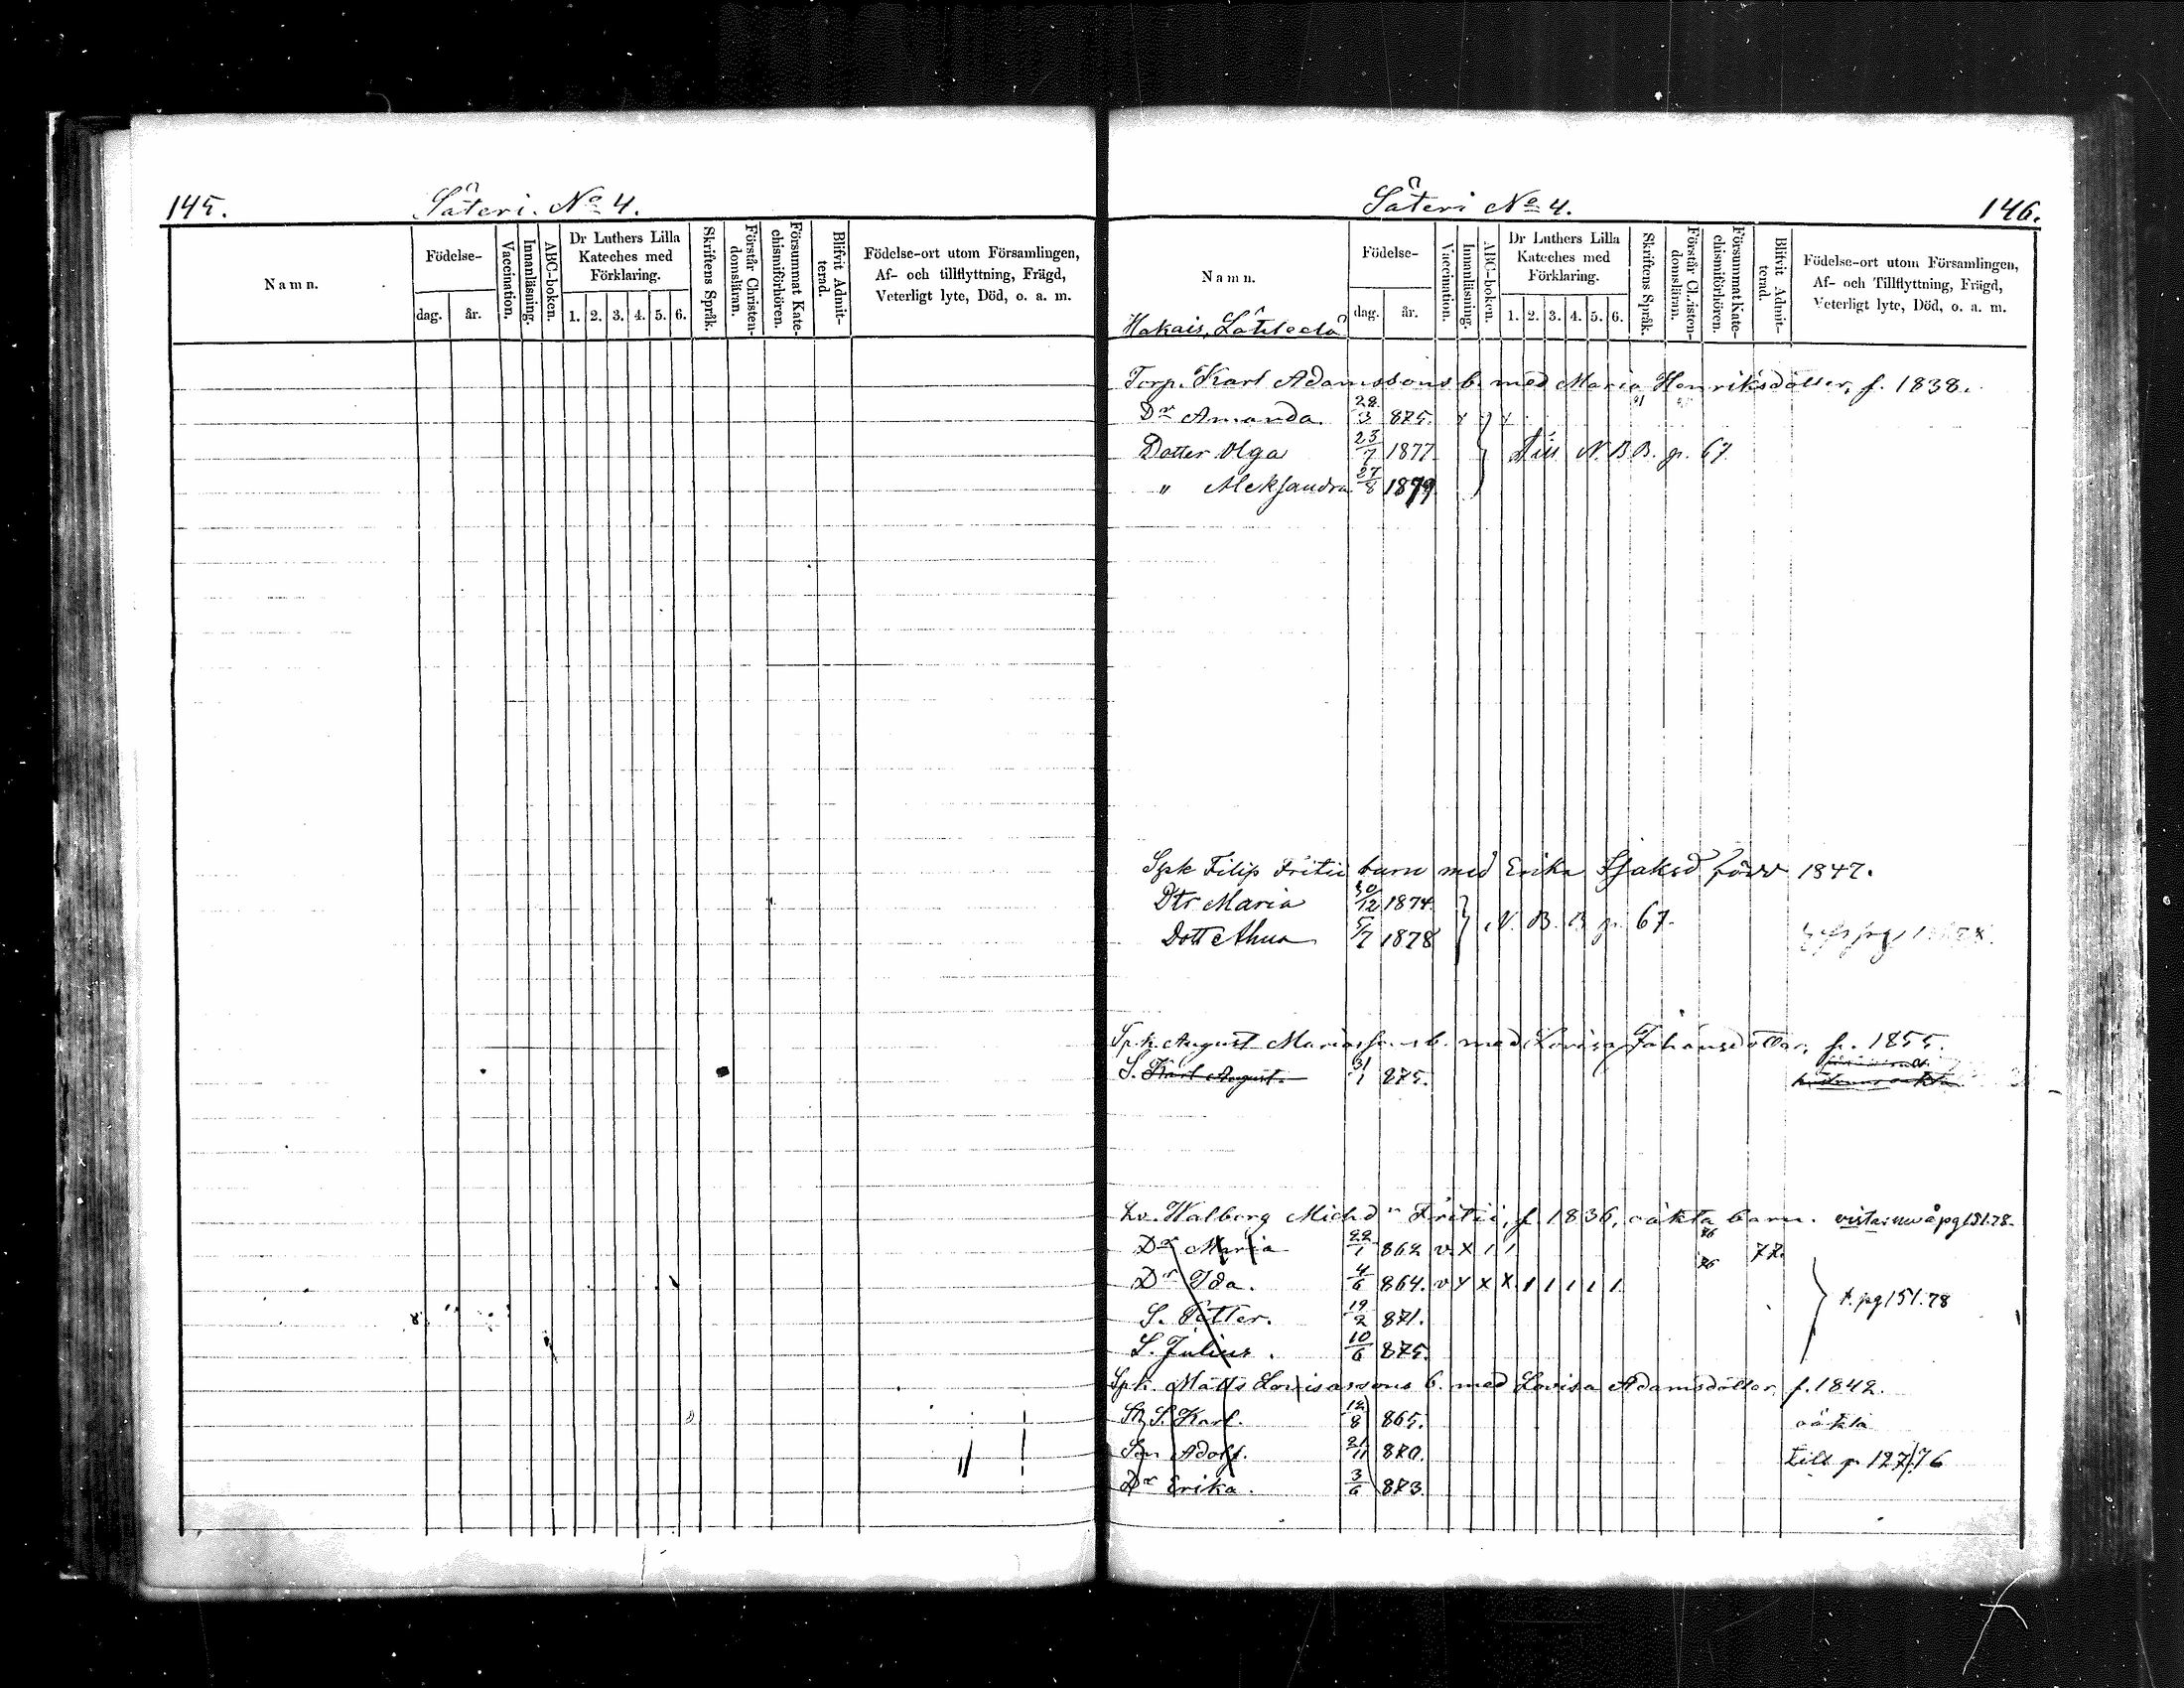 145. Såteri. No 4.
Namn.
Födelse-
dag. år.
Vaccination.
Innanläsning.
ABC-boken.
Dr Luthers Lilla Kateches med Förklaring.
1. 2. 3. 4. 5. 6.
Skriftens Språk.
Förstår Christen-domsläran.
Försummat Kate-chismiförhören.
Blifvit Admit-terad.
Födelse-ort utom Församlingen,
Af- och tillflyttning, Frägd,
Veterligt lyte, Död, o. a. m.
Såteri No 4. 146.
Namn.
Födelse-
dag. år.
Vaccination.
Innanläsning.
ABC-boken.
Dr Luthers Lilla Kateches med Förklaring.
1. 2. 3. 4. 5. 6.
Skriftens Språk.
Förstår Christen-domsläran.
Försummat Kate-chismiförhören.
Blifvit Admit-terad.
Födelse-ort utom Församlingen,
Af- och Tillflyttning, Frägd,
Veterligt lyte, Död, o. a. m.
Hakais,
Torp. Karl Adamssons b. med Maria Henriksdotter, f. 1838.
Dr Amanda. 28/3 875.
Dotter Olga 23/7 1877 N. B. B. p. 67
" Aleksandra 27/8 1879
Spk Filip Fritii barn med Erika född 1847.
Dtr Maria 30/12 1874 N. B. B p. 67.
Dott 5/7 1878
Spk. August b. med Lovisa Johansdotter, f. 1855.
S. Karl August. 31/1 875.
Walborg Michd r Fritii, f. 1836, oäkta barn. pg 151.78.
Dr Maria 22/1 862 v x 1 1 77.
Dr Ida. 4/6 864. v x x x 1 1 1 1 1
S. Petter. 19/2 871. t. pg 151.78
S. Julius. 10/6 875.
Spk. Matts Lovisassons b. med Lovisa Adamsdotter, f. 1842.
S. Karl. 12/8 865. oäkta
Son Adolf. 21/11 870. till p. 127/76
Dr Erika. 3/6 873.